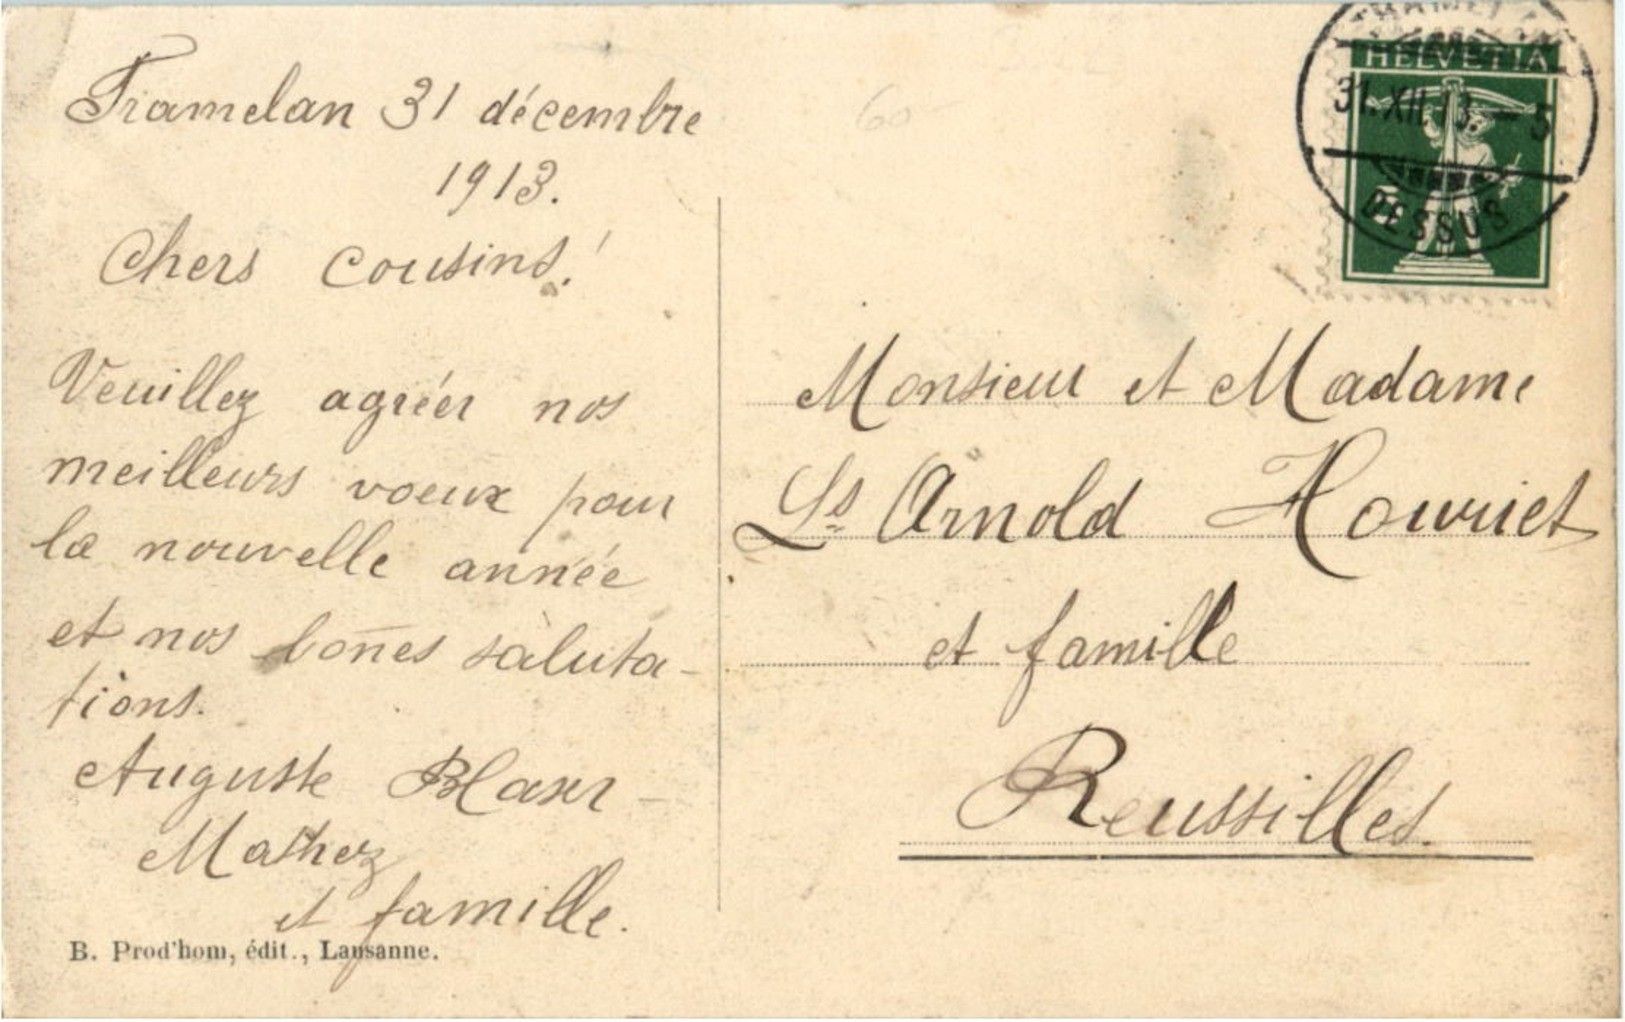 Tramelan 31 décembre
1913.
Chers cousins!
Veuillez agréer nos
meilleurs voeux pour
la nouvelle année
et nos bon̄es saluta-
tions.
Auguste Blaser-
Mathez
et famille.
B. Prod'hom, édit., Lausanne.
HELVETIA
31.XII.13.-5
DESSUS
5
Monsieur et Madame
Ls Arnold Houriet
et famille
Reussilles.
60